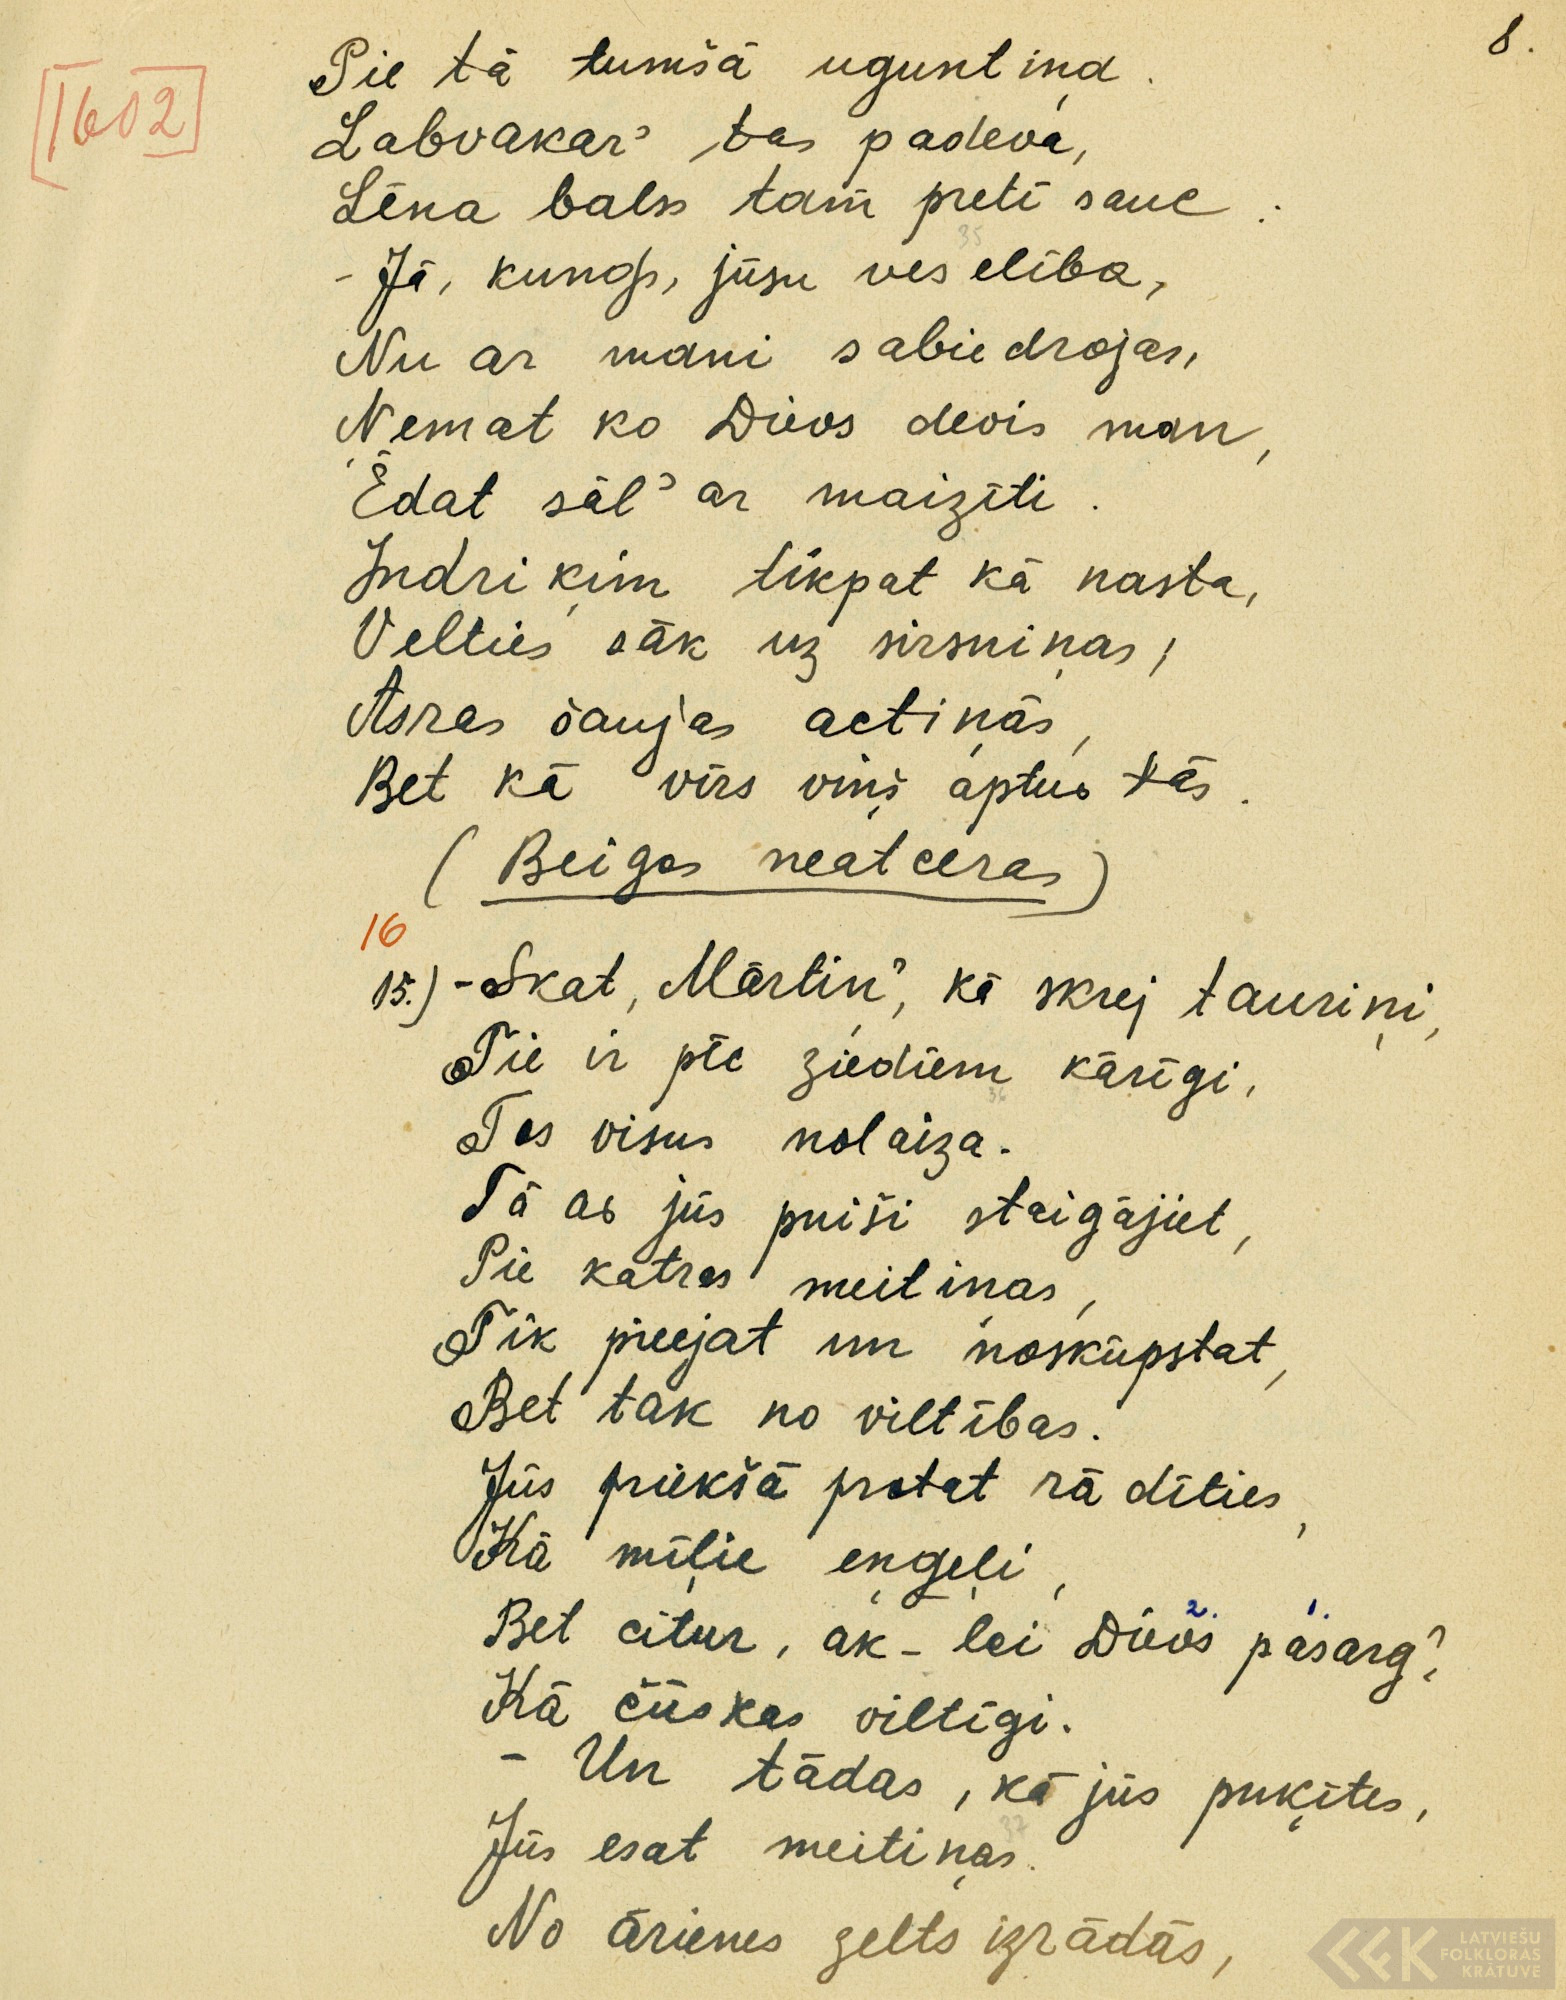 8.
[1602]
Pie tā tumšā uguntiņa.
Labvakar' tas padeva,
Lēna balss tam pretī sauc:
- Jā, kungs, jūsu veselība,
Nu ar mani sabiedrojas,
Ņemat ko Dievs devis man,
Ēdat sāl' ar maizīti.
Indriķim tikpat kā nasta,
Velties sāk uz sirsniņas,
Asras šaujas actiņās,
Bet kā vīrs viņš aptur tās.
(Beigas neatceras)
16
15.) - Skat, Mārtiņ', kā skrej tauriņi,
Tie ir pēc ziediem kārīgi,
Tos visus nolaiza.
Tā as jūs puiši staigājiet,
Pie katras meitiņas,
Tik pieejat un noskūpstat,
Bet tak no viltības.
Jūs priekšā protat rādīties,
Kā mīļie eņģeļi,
Bet citur, ak - lai Dievs 2. pasarg' 1.,
Kā čūskas viltīgi.
- Un tādas, kā jūs puķītes,
Jūs esat meitiņas.
No ārienes zelts izrādās,
LATVIEŠU
FOLKLORAS
KRĀTUVE